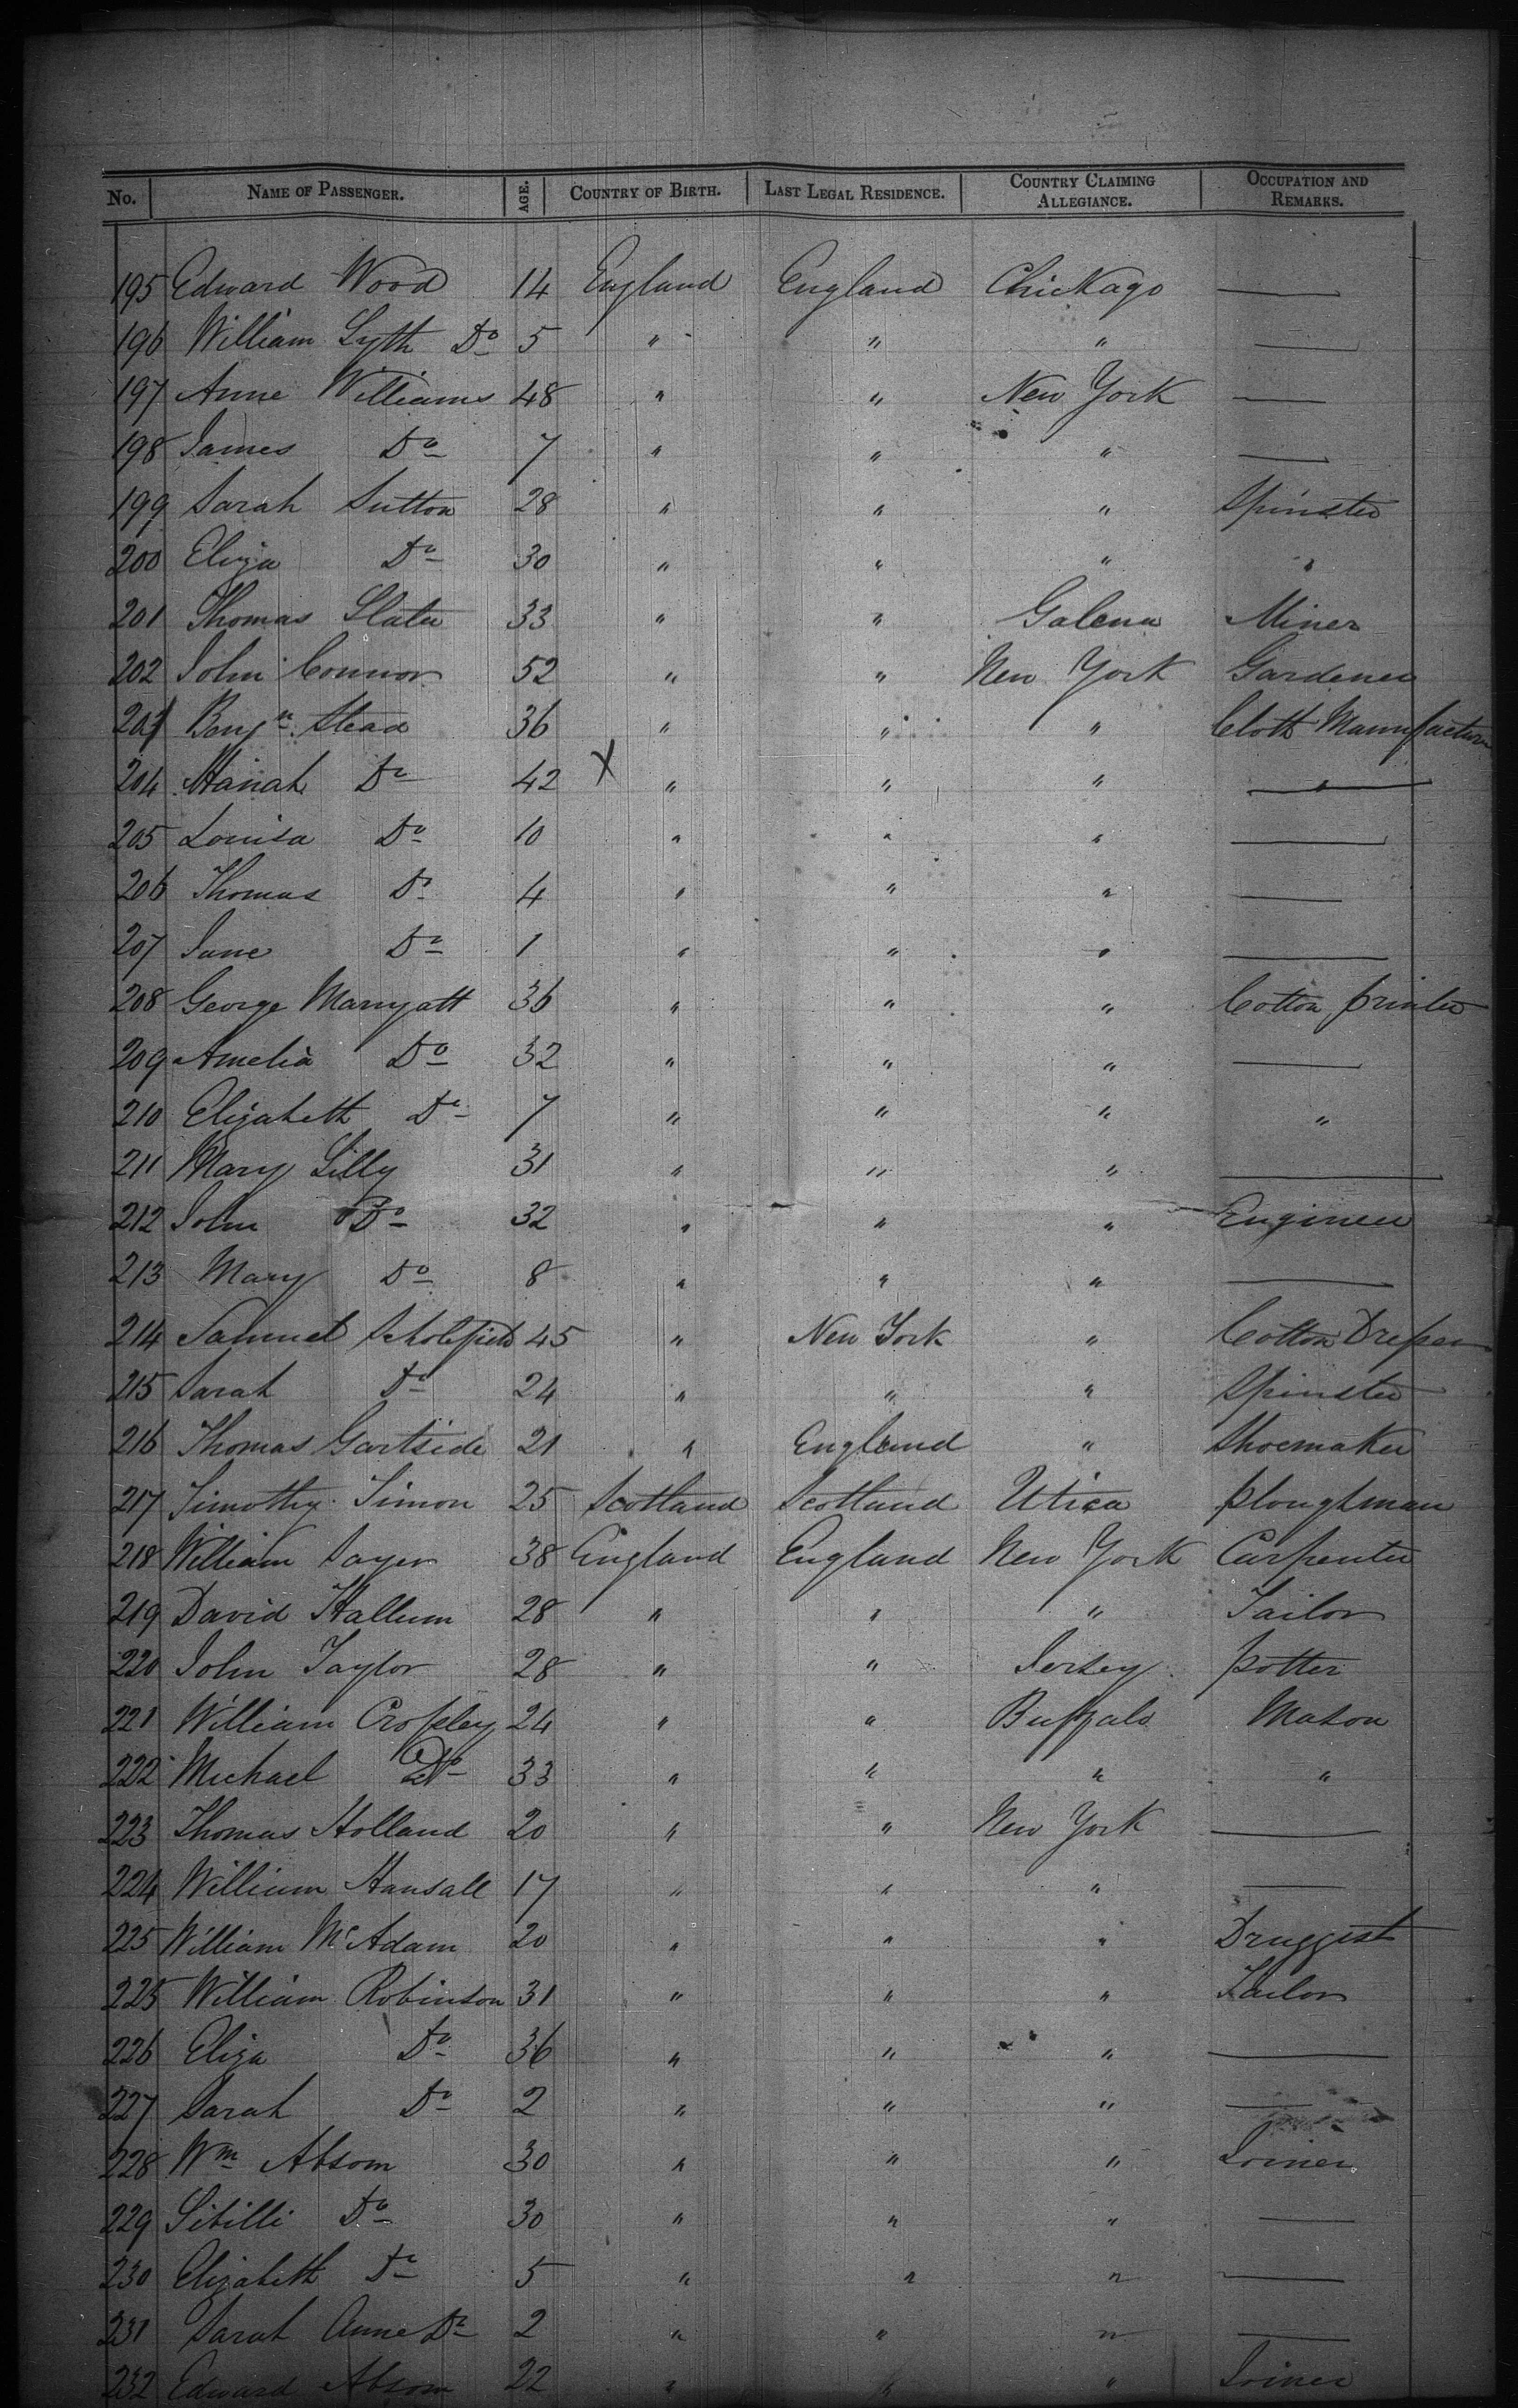 No. NAME OF PASSENGER. AGE. COUNTRY OF BIRTH. LAST LEGAL RESIDENCE. COUNTRY CLAIMING ALLEGIANCE. OCCUPATION AND REMARKS.
195 Edward Wood 14 England England Chickago —
196 William Lyth Do 5 " " " —
197 Anne Williams 48 " " New York —
198 James Do 7 " " " —
199 Sarah Sutton 28 " " " Spinster
200 Eliza Do 30 " " " "
201 Thomas Slater 33 " " Galena Miner
202 John Connor 52 " " New York Gardener
203 Benjn. Stead 36 " " " Cloth Manufacturer
204 Hanah Do 42 X " " " "
205 Louisa Do 10 " " " —
206 Thomas Do 4 " " " —
207 Jane Do 1 " " " —
208 George Marryatt 36 " " " Cotton printer
209 Amelia Do 32 " " " —
210 Elizabeth Do 7 " " " "
211 Mary Lilly 31 " " " —
212 John Do 32 " " " Engineer
213 Mary Do 8 " " " —
214 Samuel Scholefield 45 " New York " Cotton Dresser
215 Sarah Do 24 " " " Spinster
216 Thomas Gartside 21 " England " Shoemaker
217 Timothy Simon 25 Scotland Scotland Utica ploughman
218 William Sayer 38 England England New York Carpenter
219 David Hallum 28 " " " Tailor
220 John Taylor 28 " " Jersey potter
221 William Cropley 24 " " Buffalo Mason
222 Michael Do 33 " " " "
223 Thomas Holland 20 " " New York —
224 William Hansall 17 " " " —
225 William McAdam 20 " " " Druggist
225 William Robinson 31 " " " Tailor
226 Eliza Do 36 " " " —
227 Sarah Do 2 " " " —
228 Wm Absom 30 " " " Joiner
229 Sibilli Do 30 " " " —
230 Elizabeth Do 5 " " " —
231 Sarah Anne Do 2 " " " —
232 Edward Absom 22 " " " Joiner